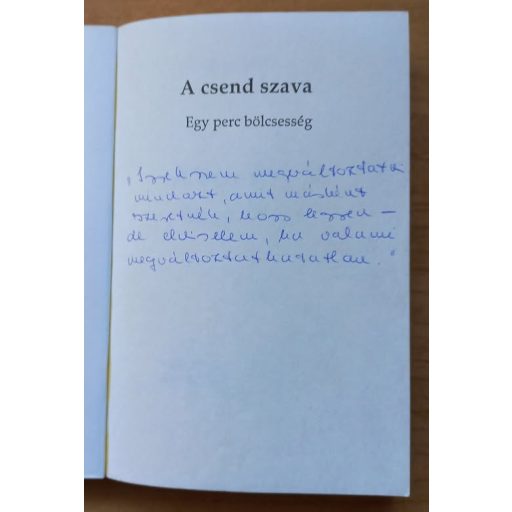 A csend szava
Egy perc bölcsesség
„Igyekszem megváltoztatni
mindazt, amit másként
szeretnék, hogy legyen –
de elviselem, ha valami
megváltoztathatatlan."